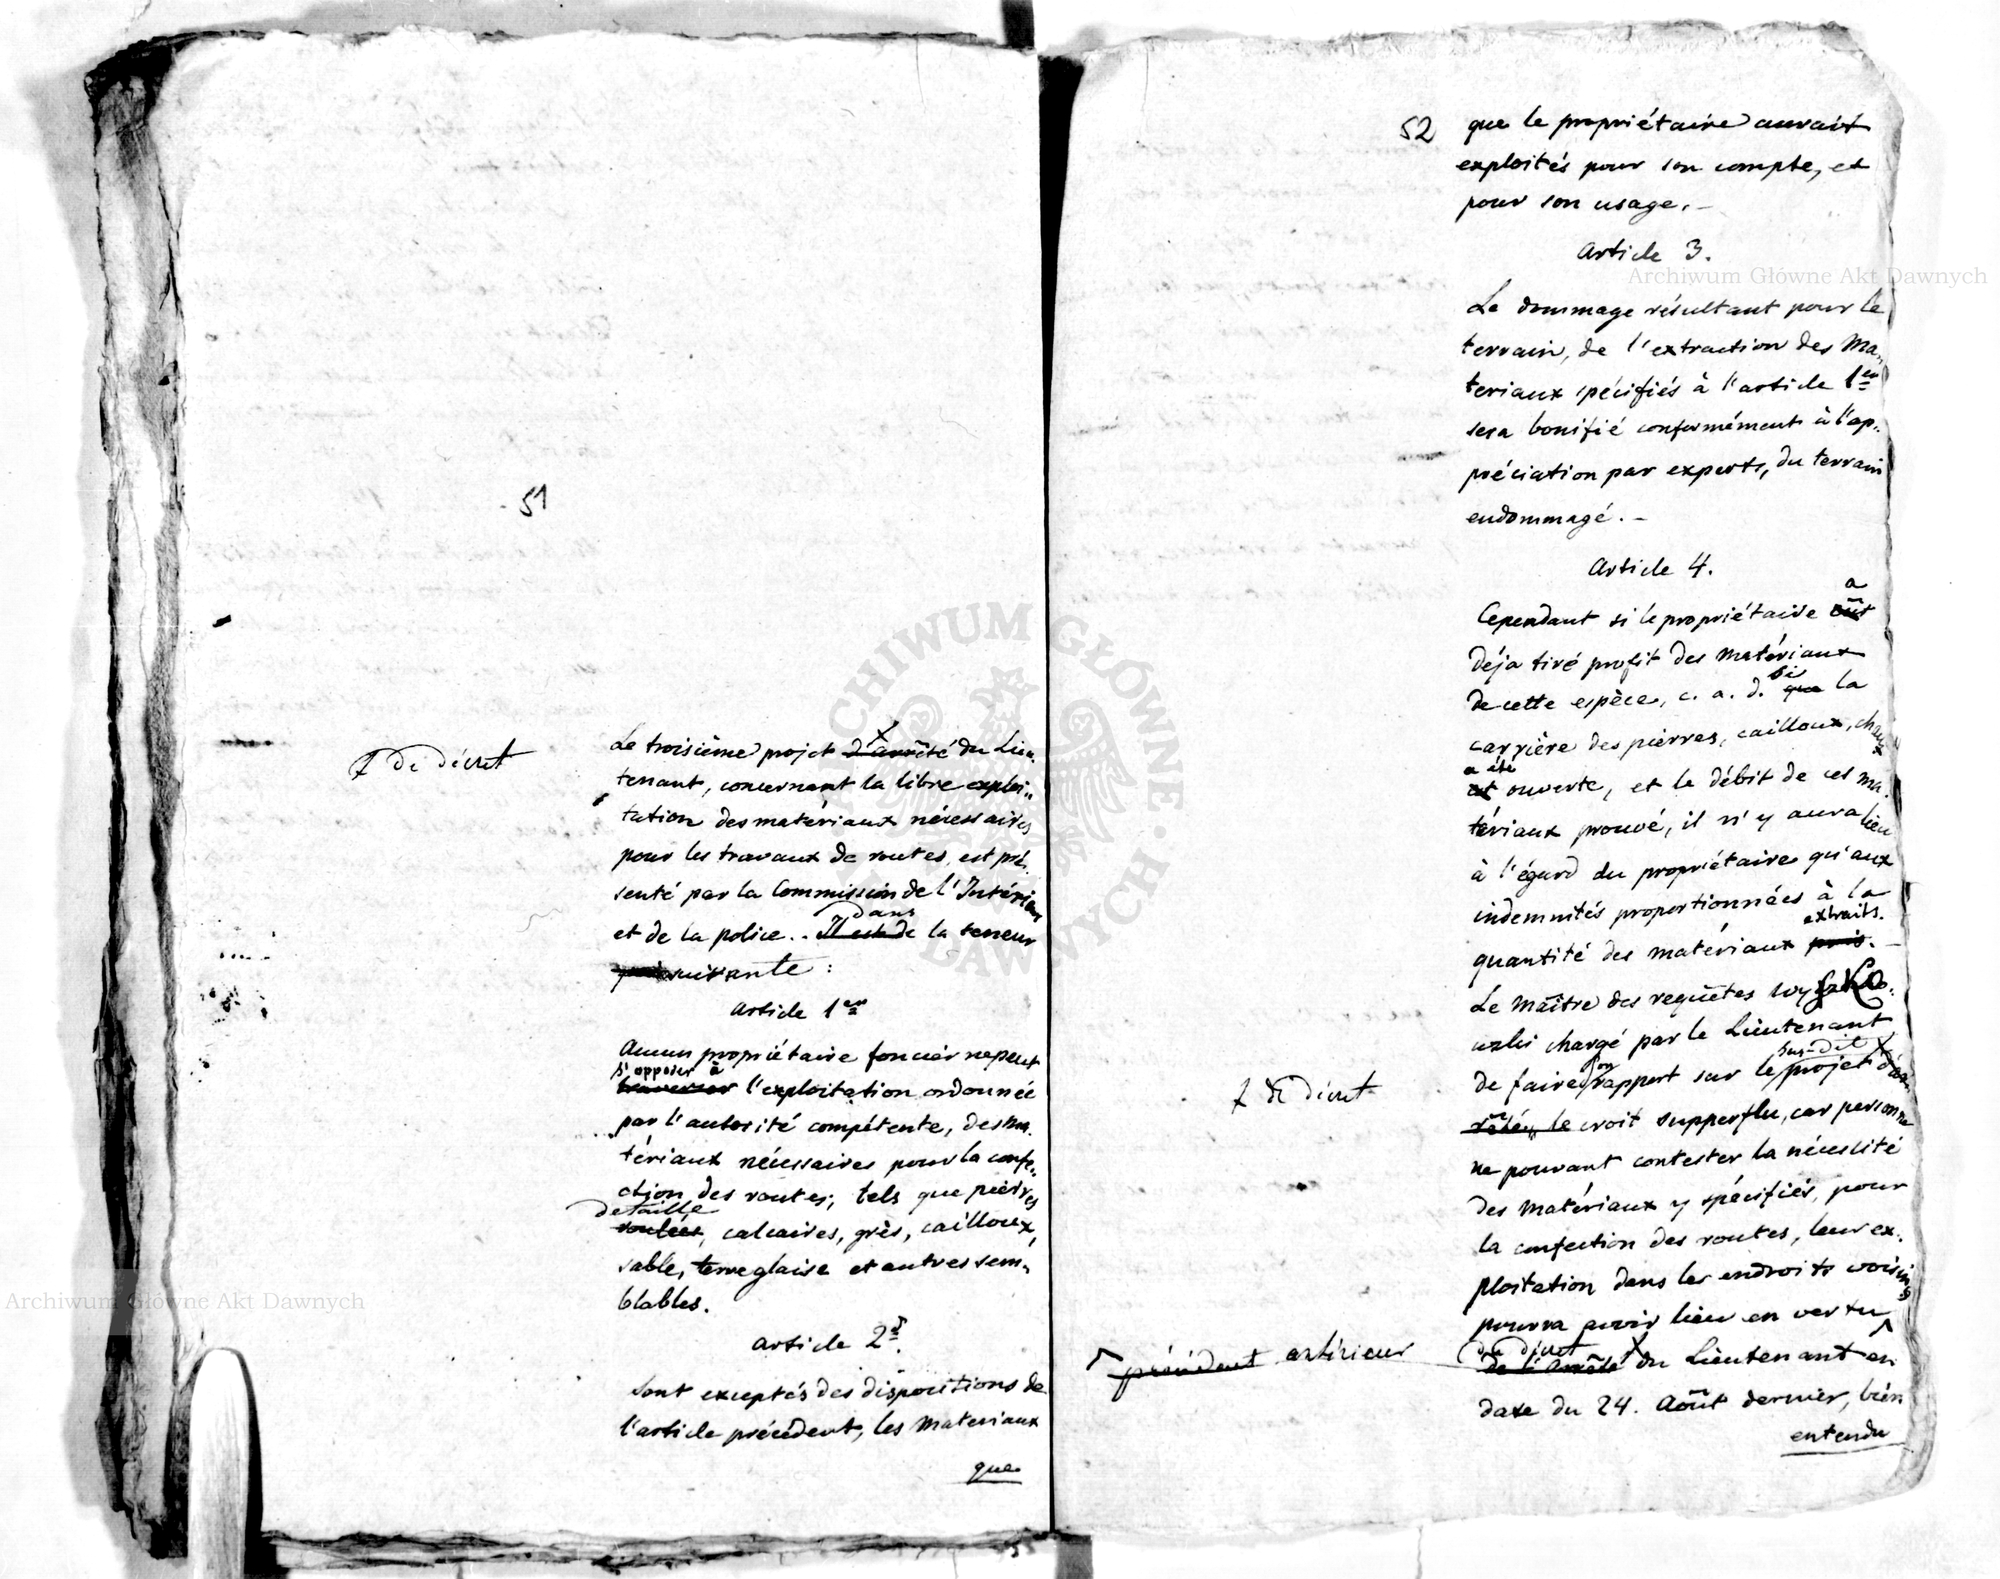 51
ƚ de décret
Le troisième projet d'arrêté du Lieu-
tenant, concernant la libre exploi-
tation des matériaux nécessaires
pour les travaux de routes, est pré-
senté par la Commission de l'Intérieur
dans
et de la police.. Il est de la teneur
suivante :
Article 1er
Aucun propriétaire foncier ne peut
s'opposer à
traverser l'exploitation ordonnée
par l'autorité compétente, des ma-
tériaux nécessaires pour la confe-
ction des routes, tels que pierres
de taille
roulées, calcaires, grès, cailloux,
sable, terre glaise et autres sem-
blables.
Article 2d.
Sont exceptés des dispositions de
l'article précédent, les Materiaux
que
52
que le propriétaire aurait
exploités pour son compte, et
pour son usage. –
Article 3.
Le dommage résultant pour le
terrain, de l'extraction des Ma-
teriaux spécifiés à l'article 1er
sera bonifié conformément à l'ap-
préciation par experts, du terrain
endommagé. –
Article 4.
a
Cependant si le propriétaire eût
déja tiré profit des matériaux
si
de cette espèce, c. a. d. que la
carrière des pierres, cailloux, chaux
a été
est ouverte, et le débit de ces ma-
tériaux prouvé, il n'y aura lieu
à l'égard du propriétaire qu'aux
indemnités proportionnées à la
extraits.
quantité des matériaux pris. –
Le Maître des requêtes
chargé par le Lieutenant
son sus-dit
de faire rapport sur le projet d'ar-
rêté, le croit supperflu, car personne
ƚ de décret
ne pouvant contester la nécessité
des matériaux y spécifiés, pour
la confection des routes, leur ex-
ploitation dans les endroits voisins
pourra avoir lieu en vertu
précédent antérieur
du décret
de l'arrêté du Lieutenant en
date du 24. Août dernier, bien
entendu
Archiwum Główne Akt Dawnych
Archiwum Główne Akt Dawnych
ARCHIWUM GŁÓWNE AKT DAWNYCH